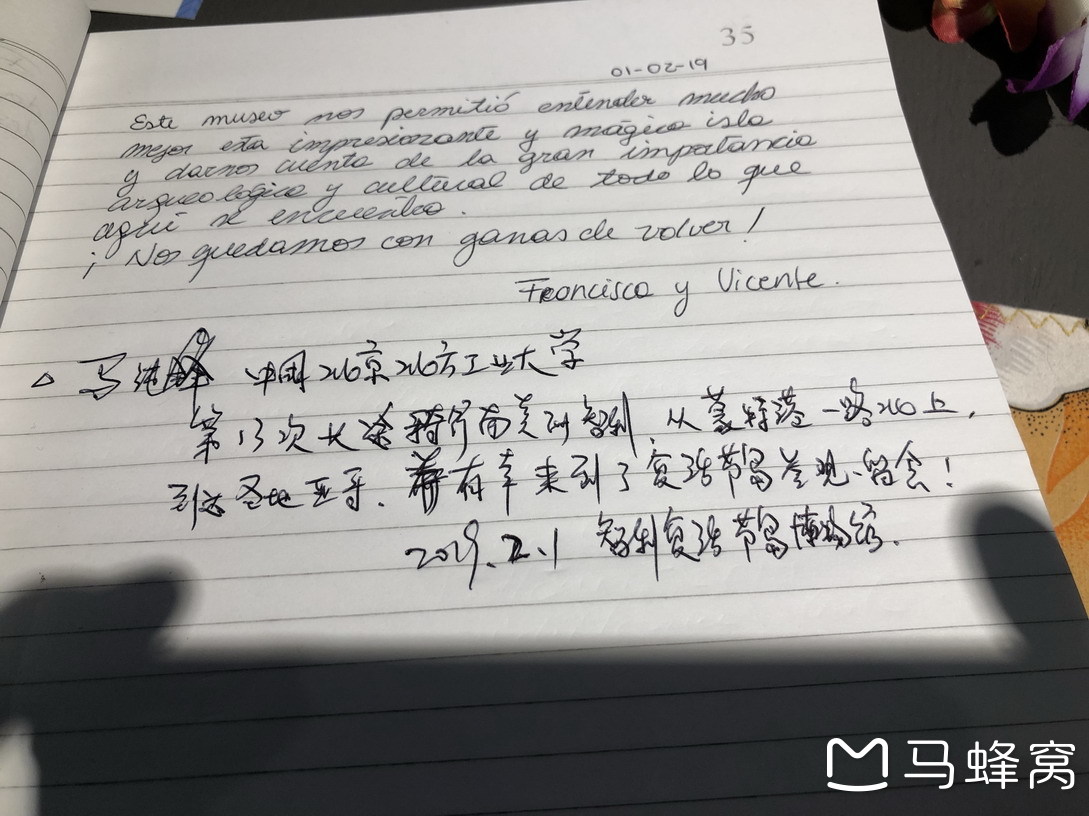 35
01-02-19
Este museo nos permitió entender mucho
mejor esta impresionante y mágica isla
y darnos cuenta de la gran importancia
arqueológica y cultural de todo lo que
aquí se encuentra.
¡Nos quedamos con ganas de volver!
Francisco y Vicente.
△ 马 中国北京北方工业大学
第13次长途骑行南美洲智利,从蒙特港一路北上,
到达圣地亚哥. 有幸来到了复活节岛参观.留念!
2019.2.1 智利复活节岛博物馆.
马蜂窝